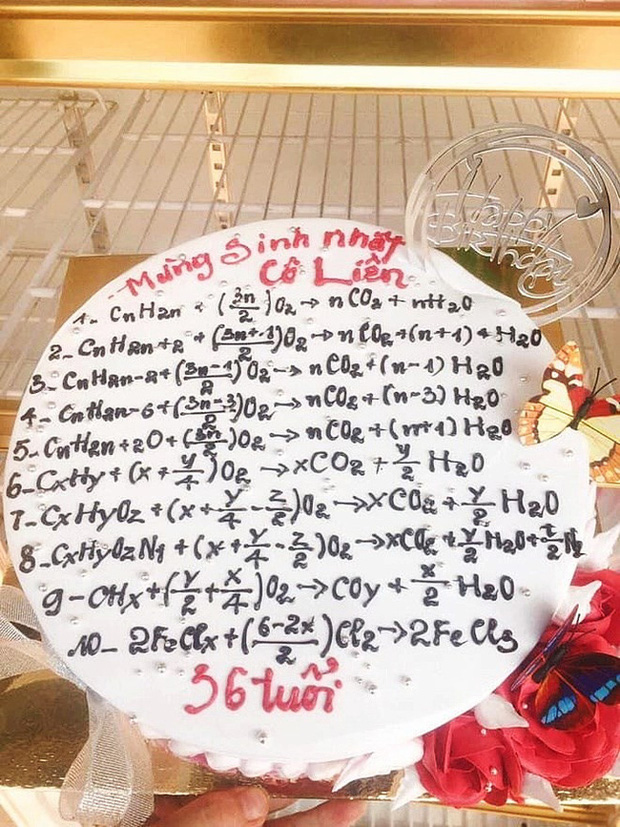 Happy
Birthday
Mừng Sinh nhật
Cô Liên
1- CnH2n + (3n/2)O2 → nCO2 + nH2O
2- CnH2n+2 + (3n+1/2)O2 → nCO2 + (n+1) + H2O
3- CnH2n-2 + (3n-1/2)O2 → nCO2 + (n-1) H2O
4- CnH2n-6 + (3n-3/2)O2 → nCO2 + (n-3) H2O
5- CnH2n+2O + (3n/2)O2 → nCO2 + (n+1) H2O
6- CxHy + (x + y/4)O2 → xCO2 + y/2 H2O
7- CxHyOz + (x + y/4 - z/2)O2 → xCO2 + y/2 H2O
8- CxHyOzNt + (x + y/4 - z/2)O2 → xCO2 + y/2 H2O + t/2 N2
9- CHx + (y/2 + x/4)O2 → COy + x/2 H2O
10- 2FeClx + (6-2x/2)Cl2 → 2FeCl3
36 tuổi